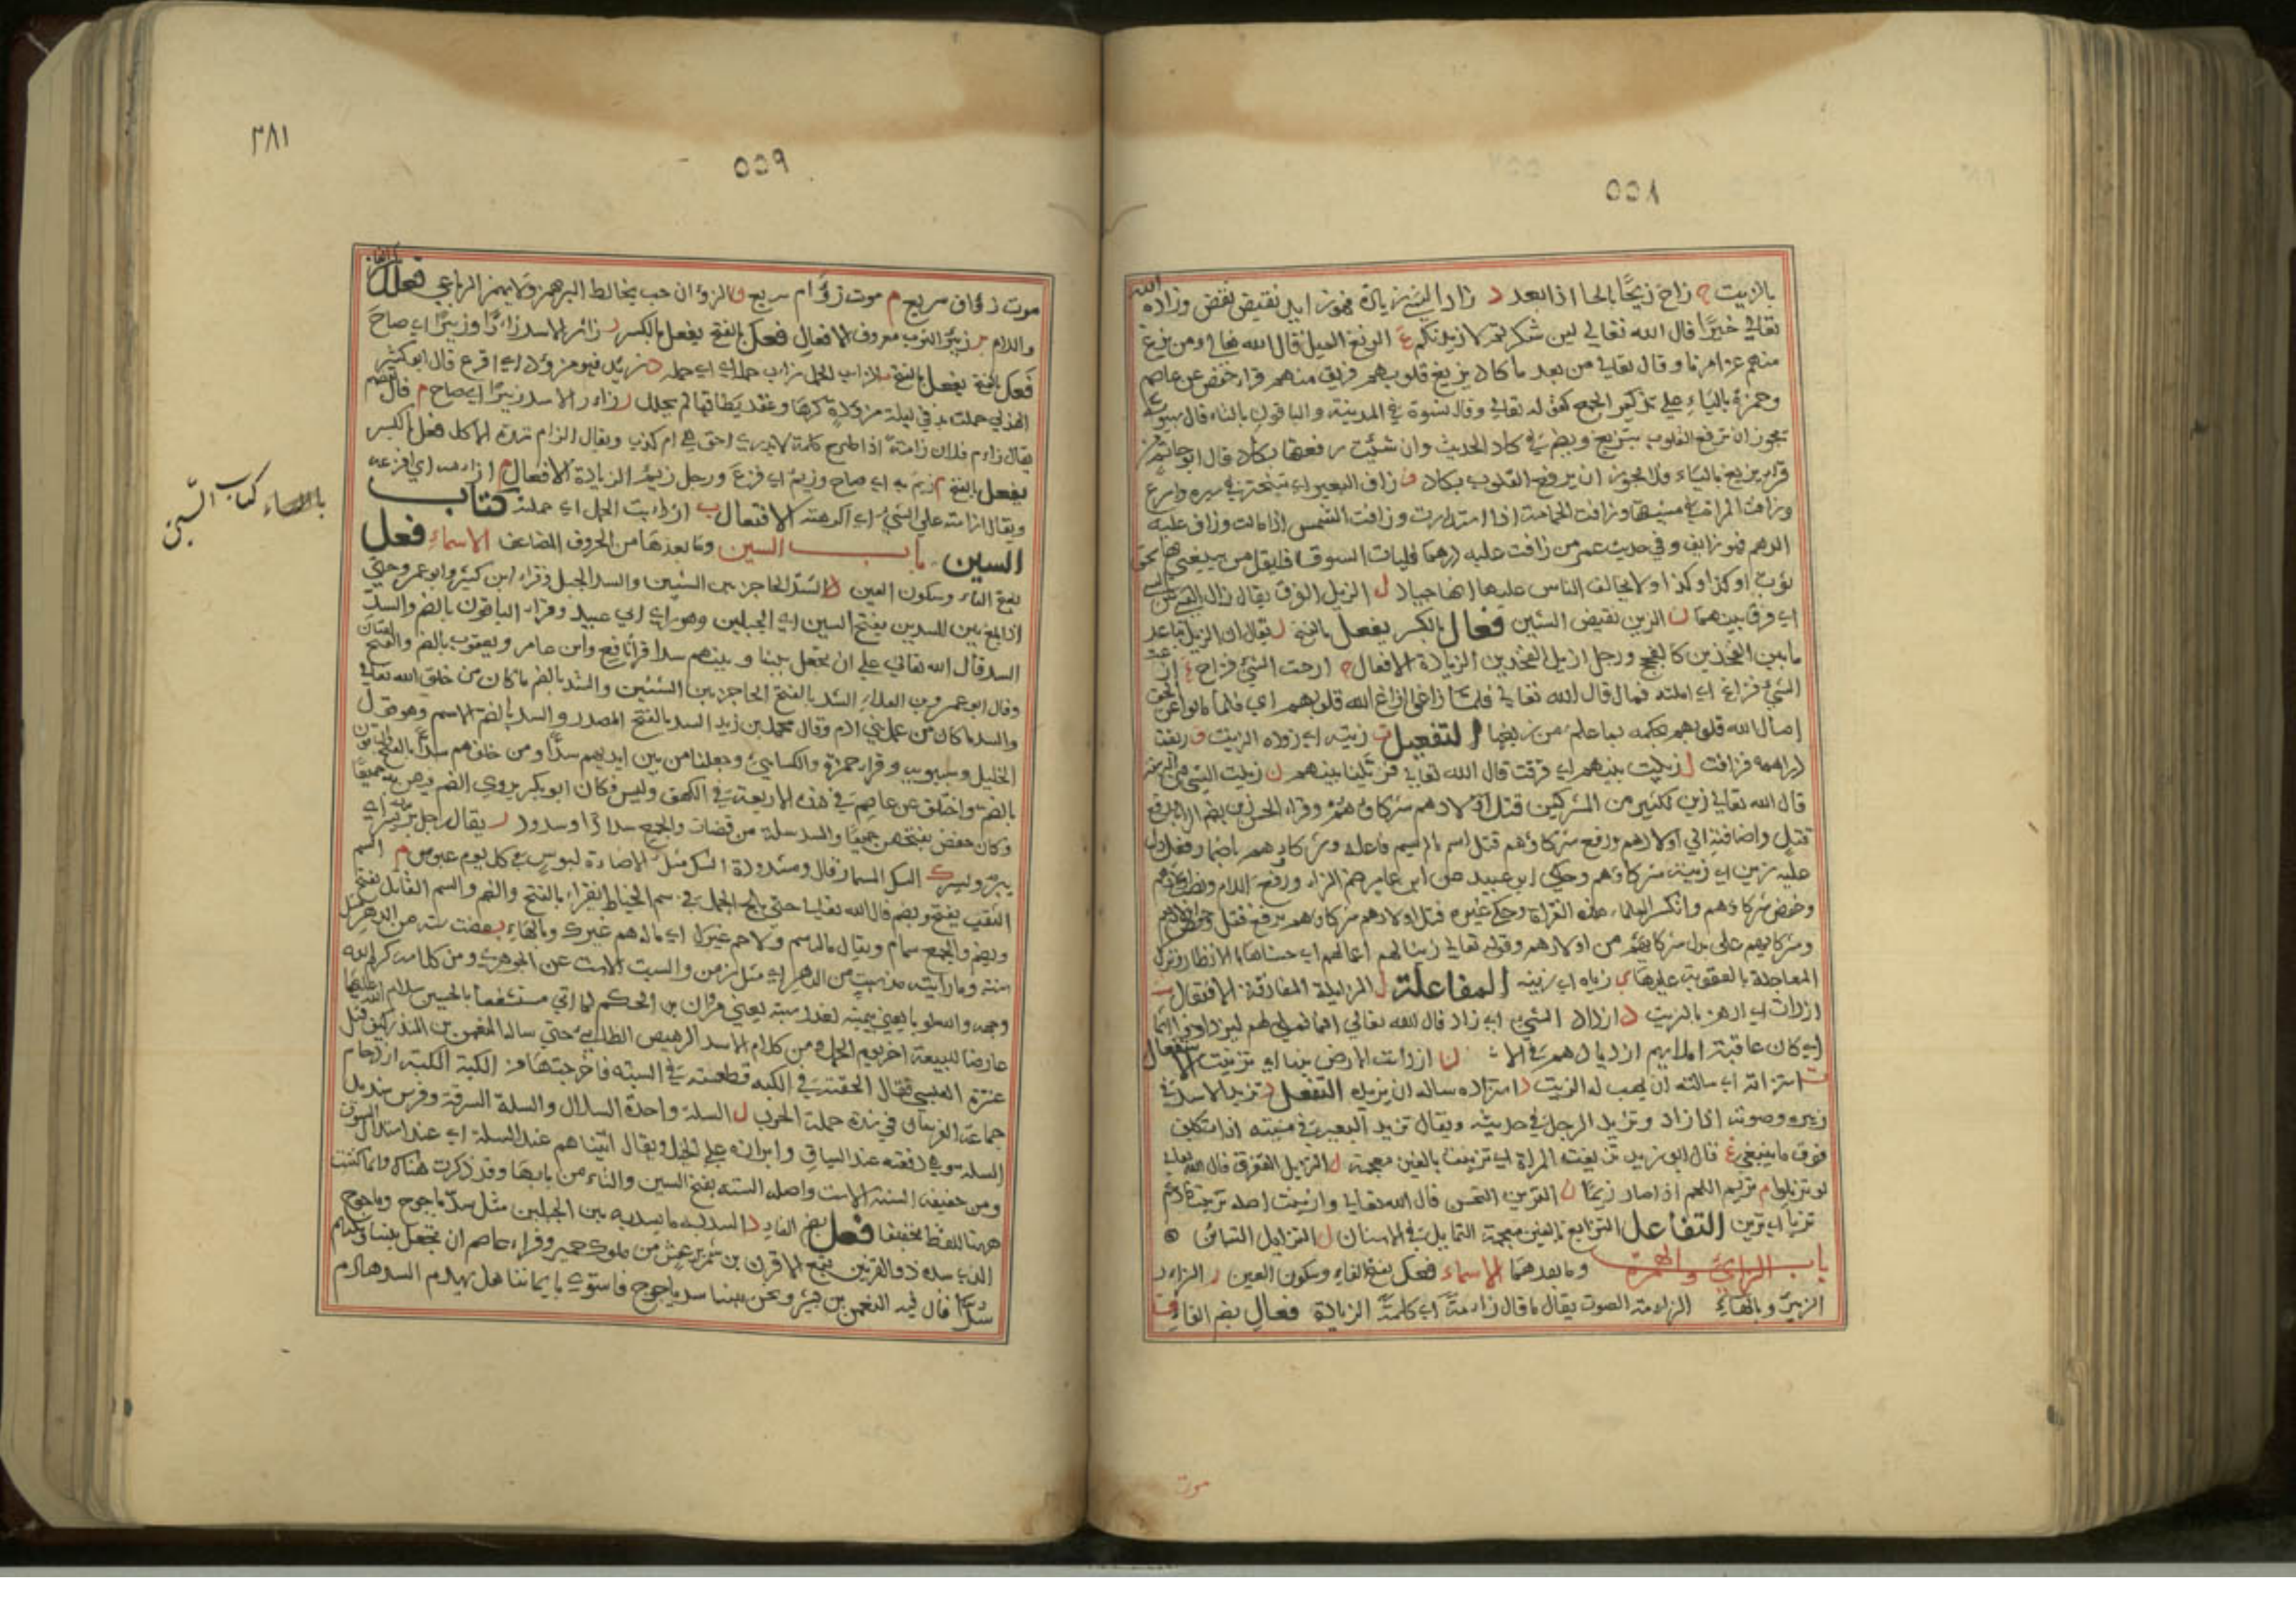 ٥٥٨
بالزيت ح زاح زيحًا بالحا اذا بعد د زاد الشئ زيادة فهو زايد نقيض نقص وزاده الله
تعالى خيرًا قال الله تعالى لين شكرتم لازيدنكم غ الزيغ الميل قال الله تعالى ومن يزغ
منهم عن امرنا وقال تعالى من بعد ما كاد يزيغ قلوب فريق منهم قراء حفص عن عاصم
وحمزة بالياء على تذكير الجمع كقوله تعالى وقال نسوة في المدينة والباقون بالتاء قال سيبويه
يجوز ان ترفع القلوب بتزيغ ويضمر في كاد الحديث وان شئت رفعتها بكاد قال ابو حاتم من
قراء يزيغ بالياء فلا يجوز ان يرفع القلوب بكاد ف زاف البعير اي تبختر في سيره واسرع
وزافت المراة في مشيتها وزافت الحمامة اذا استدارت وزافت الشمس اذا مالت وزاف عليه
الدرهم فهو زايف وفي حديث عمر من زافت عليه درهما فليات السوق فليقل من يبيعني بها سحق
ثوب او كذا وكذا ولا يحالف الناس عليها انها جياد ل الزيل الفرق يقال زال الشئ عن الشئ
اي فرق بينهما ن الزين نقيض الشين فعل بالكسر يفعل بالفتح ل يقال ان الزيل تباعد
ما بين الفخذين كالفحج ورجل ازيل الفخذين الزيادة الافعال ح ازحت الشئ فزاح غ ازغت
الشئ فزاغ اي املته فمال قال الله تعالى فلما زاغوا ازاغ الله قلوبهم اي فلما مالوا عن الحق
امال الله قلوبهم بحكمه بما علم من زيغهم التفعيل ت زيته اي زوده الزيت ف زيفت
دراهمه فزافت ل زيلت بينهم اي فرقت قال الله تعالى فزيلنا بينهم ن زينت الشئ من الزينة
قال الله تعالى زين لكثير من المشركين قتل اولادهم شركاؤهم وقراء الحسن زين بضم الزاي برفع
قتل واضافته الى اولادهم ورفع شركاؤهم قتل اسم ما لم يسم فاعله وشركاؤهم باضمار فعل دل
عليه زين اي زينه شركاؤهم وحكى ابو عبيد عن ابن عامر ضم الزاء ورفع اللام ونصب اولادهم
وخفض شركاؤهم وانكر العلماء هذه القراة وحكى غيره قتل اولادهم شركاؤهم برفع قتل وخفض اولادهم
وشركائهم على بدل شركائهم من اولادهم وقوله تعالى زينا لهم اعمالهم اي حسناها بالانظار وترك
المعاجلة بالعقوبة عليها ي زياه اي زينه المفاعلة ل المزايلة المفارقة الافتعال ت
ازدات اي ادهن بالزيت د ازداد الشئ اي زاد قال الله تعالى انما نملي لهم ليزدادوا اثما
اي كان عاقبة املايهم ازديادهم في الاثم ن ازدانت الارض بنباتها اي تزينت الاستفعال
ت استزاته اي سالته ان يهب له الزيت د استزاده ساله ان يزيده التفعل د تزيد الاسد في
زئيره وصوته اذا زاد وتزيد الرجل في حديثه ويقال تزيد البعير في مشيته اذا تكلف
فوق ما ينبغي غ قال ابو زيد تزيغت المراة اي تزينت بالغين معجمة ل التزيل التفرق قال الله تعالى
لو تزيلوا م تزيم اللحم اذا صار زيمًا ن التزين التحسن قال الله تعالى وازينت اصله تزينت فادغم
تزيا اي تزين التفاعل التزايغ بالغين معجمة التمايل في الاسنان ل التزايل التباين
باب الزاي والهمزة وما بعدهما الاسماء فعل بفتح الفاء وسكون العين ر الزارء
الزئير وبالهاء الزامة الصوت يقال ما قال زامة اي كلمة الزيادة فعال بضم الفاء ف
موت
٣٨١
٥٥٩
موت زؤاف سريع م موت زؤام سريع ن الزؤان حب يخالط البر همز ولا يهمز الرباعي فعلل بكسر الفاء
واللام ر زئبر الثوب معروف الافعال فعل بالفتح يفعل بالكسر ر زار الاسد زارًا وزئيرًا اي صاح
فعل بالفتح يفعل بالفتح ب زاب الحمل زاب حمله اي حمله د زئد فهو مزؤد اي افزع قال ابو كبير
الهذلي حملت به في ليلة مزؤدة كرها وعقد نطاقها لم يحلل ر زار الاسد زئيرًا اي صاح م
يقال زام فلان زامة اذا طرح كلمة لا يدري احق هي ام كذب ويقال الزام شدة الاكل فعل بالكسر
يفعل بالفتح م زئم به اي صاح وزئم اي فزع ورجل زئم الزيادة الافعال م ازامه اي افزعه
ويقال ازامته على الشئ اي اكرهته الافتعال ب ازدابت الحمل اي حملته كتاب
السين باب السين وما بعدها من الحروف المضاعف الاسماء فعل
باب السين كتاب السين
بفتح الفاء وسكون العين د السد الحاجز بين الشيئين والسد الجبل وقراء ابن كثير وابو عمرو حتى
اذا بلغ بين السدين بفتح السين اي الجبلين وهو راي ابي عبيد وقراء الباقون بالضم والسد
السد قال الله تعالى على ان تجعل بيننا وبينهم سدا قرا نافع وابن عامر ويعقوب بالضم والفتح لغتان
وقال ابو عمرو بن العلاء السد بالفتح الحاجز بين الشيئين والسد بالضم ما كان من خلق الله تعالى
والسد ما كان من عمل بني ادم وقال محمد بن زيد السد بالفتح المصدر والسد بالضم الاسم وهو قول
الخليل وسيبويه وقراء حمزة والكسائي وجعلنا من بين ايديهم سدًا ومن خلفهم سدًا بالفتح والباقون
بالضم واختلف عن عاصم في هذه الاربعة في الكهف وليس فكان ابو بكر يروي الضم فيهن جميعًا
وكان حفص يفتحهن جميعًا والسد سلة من قضبان والجمع سدادًا وسدود ر يقال رجل بر سر اي
يبر ويسر ك السك المسمار قال ومشدودة السك مثل الاضاءة لبوس في كل يوم عبوس م السم
الثقب يفتح ويضم قال الله تعالى حتى يلج الجمل في سم الخياط يقراء بالفتح والضم والسم القاتل بفتح
ويضم والجمع سمام ويقال ماله سم ولا حم غيرك اي ماله هم غيرك وبالهاء ب مضت سبة من الدهر مثل
سنة وما رايته مذ سبة من الدهر اي مثل زمن والسبت الاست عن الجوهري ومن كلام
عارضا للبيعة اخر يوم الجمل ومن كلام الاسد الرهيص الطائي حتى ساله النعمان بن المنذر كيف قتل
عنترة العبسي فقال الحقته في الكبه فطعنته في السبه فاخرجتها من اللبة الكبة ازدحام
جماعة الفرسان في شدة حملة الحرب ل السلة واحدة السلال والسلة السرقة وفرس شديد
السلة وهي دفعته عند السباق وابرازه على الخيل ويقال اتيناهم عند السلة اي عند استلال السيوف
ومن خفيفه السنه الاست واصله السته بفتح السين والتاء من بابها وقد ذكرت هناك وانما كتبت
ههنا للفظ تخفيفها فعل بضم الفاء د السد ما يسد به بين الجبلين مثل سد ياجوج وماجوج
الذي سده ذو القرنين تبع الاقرن بن شمر يرعش من ملوك حمير وقراء عاصم ان تجعل بيننا وبينهم
سدًا قال فيه النعمن بن بشير ونحن بنينا سد ياجوج فاستوى بايماننا هل يهدم السد هادم